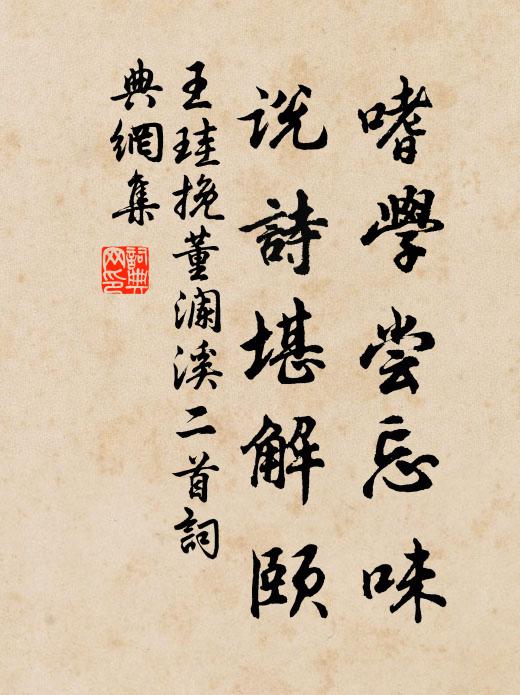 嗜學尝忘味
説詩堪解頤
王珪挽董澜溪二首詞
典網集
詞典网印